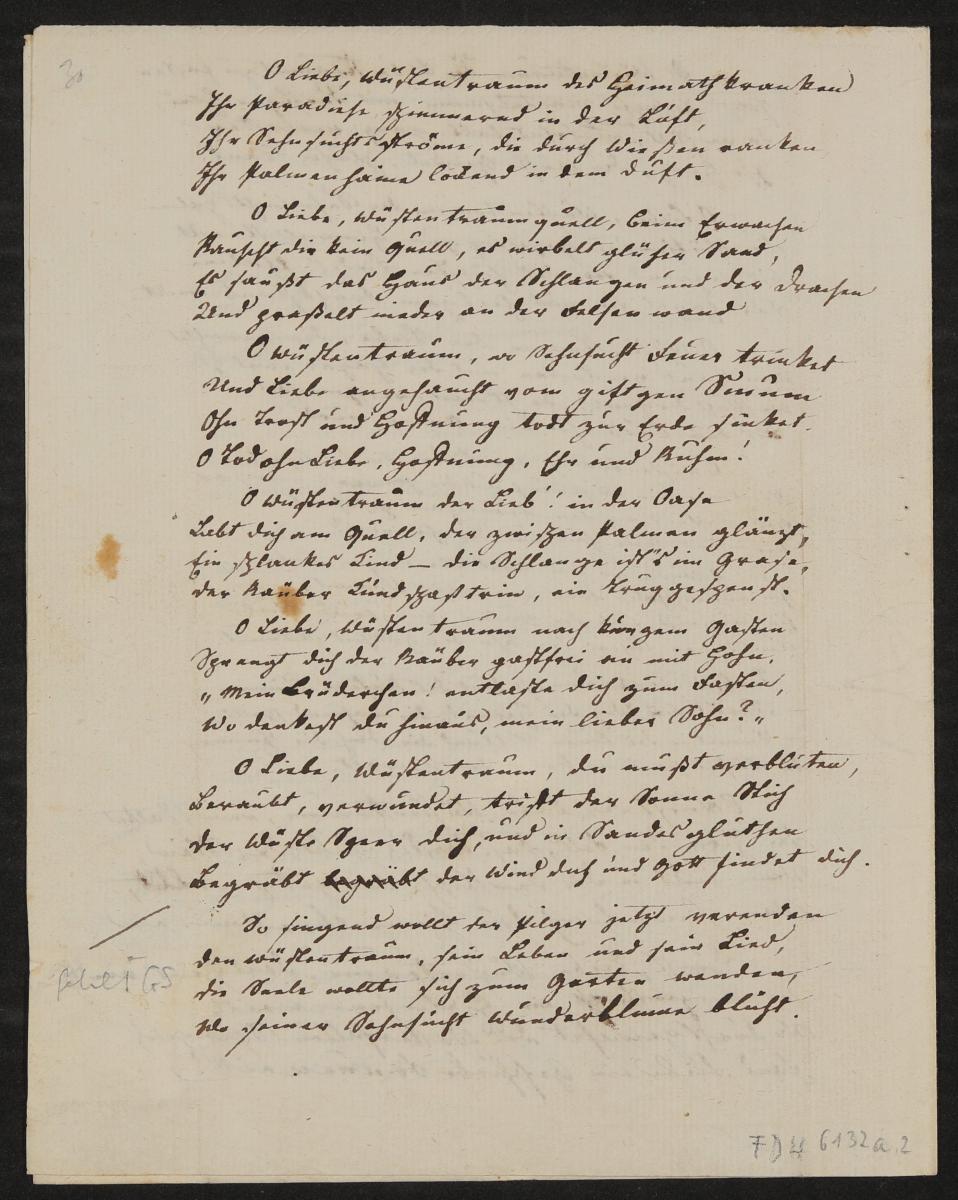 30
O Liebe, Wüstentraum des Heimathkranken
Ihr Paradiese schimmernd in der Luft,
Ihr Sehnsuchtsströme, die durch Wiesen ranken
Ihr Palmenhaine lockend in dem Duft.
O Liebe, Wüstentraumquell, beim Erwachen
Rauscht dir kein Quell, es wirbelt glüher Sand,
Es saußt das Haus der Schlangen und der Drachen
Und praßelt nieder an der Felsenwand
O Wüstentraum, wo Sehnsucht Feuer trinket
Und Liebe angehaucht vom giftgen Smum
Ohn Trost und Hoffnung todt zur Erde sinket.
O Tod ohn Liebe, Hoffnung, Ehr und Ruhm!
O Wüstentraum der Lieb'! in der Oase
Labt dich am Quell, der zwischen Palmen glänzt,
Ein schlankes Kind — die Schlange ist's im Grase,
der Räuber Kundschafterin, ein Truggespenst.
O Liebe, Wüstentraum nach kargem Gasten
Sprengt dich der Räuber gastfrei an mit Hohn,
„Mein Brüderchen! entlaste dich zum Fasten,
Wo denkest du hinaus, mein lieber Sohn?„
O Liebe, Wüstentraum, du mußt verbluten,
Beraubt, verwundet, trifft der Sonne Stich
Der Wüste Speer dich, und in Sandesgluthen
Begräbt begräbt der Wind dich und Gott findet dich.
So singend wollt der Pilger jetzt verenden
den Wüstentraum, sein Leben und sein Lied,
die Seele wollte sich zum Garten wenden,
Wo seiner Sehnsucht Wunderblume blüht.
fehlt i GS
FDH 6132a,2